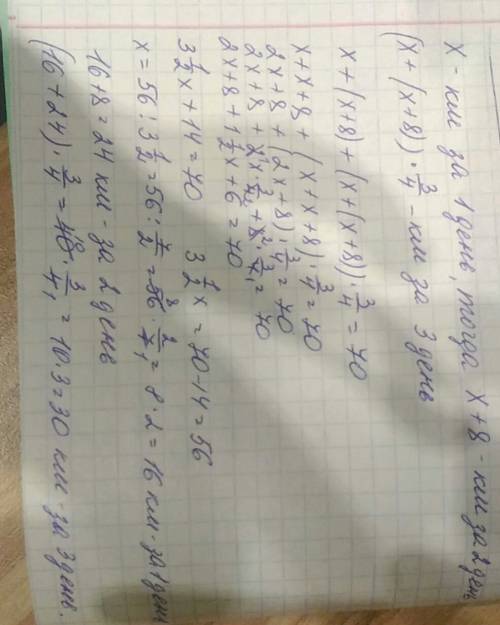 x - км за 1 день, тогда x + 8 - км за 2 день
(x + (x+8)) · 3/4 - км за 3 день
x + (x+8) + (x + (x+8)) · 3/4 = 70
x + x + 8 + (x + x + 8) · 3/4 = 70
2x + 8 + (2x + 8) · 3/4 = 70
2x + 8 + 2x · 3/4 + 8 · 3/4 = 70
2x + 8 + 1 1/2 x + 6 = 70
3 1/2 x + 14 = 70 3 1/2 x = 70 - 14 = 56
x = 56 : 3 1/2 = 56 : 7/2 = 56 · 2/7 = 8 · 2 = 16 км - за 1 день
16 + 8 = 24 км - за 2 день
(16 + 24) · 3/4 = 40 · 3/4 = 10 · 3 = 30 км - за 3 день.